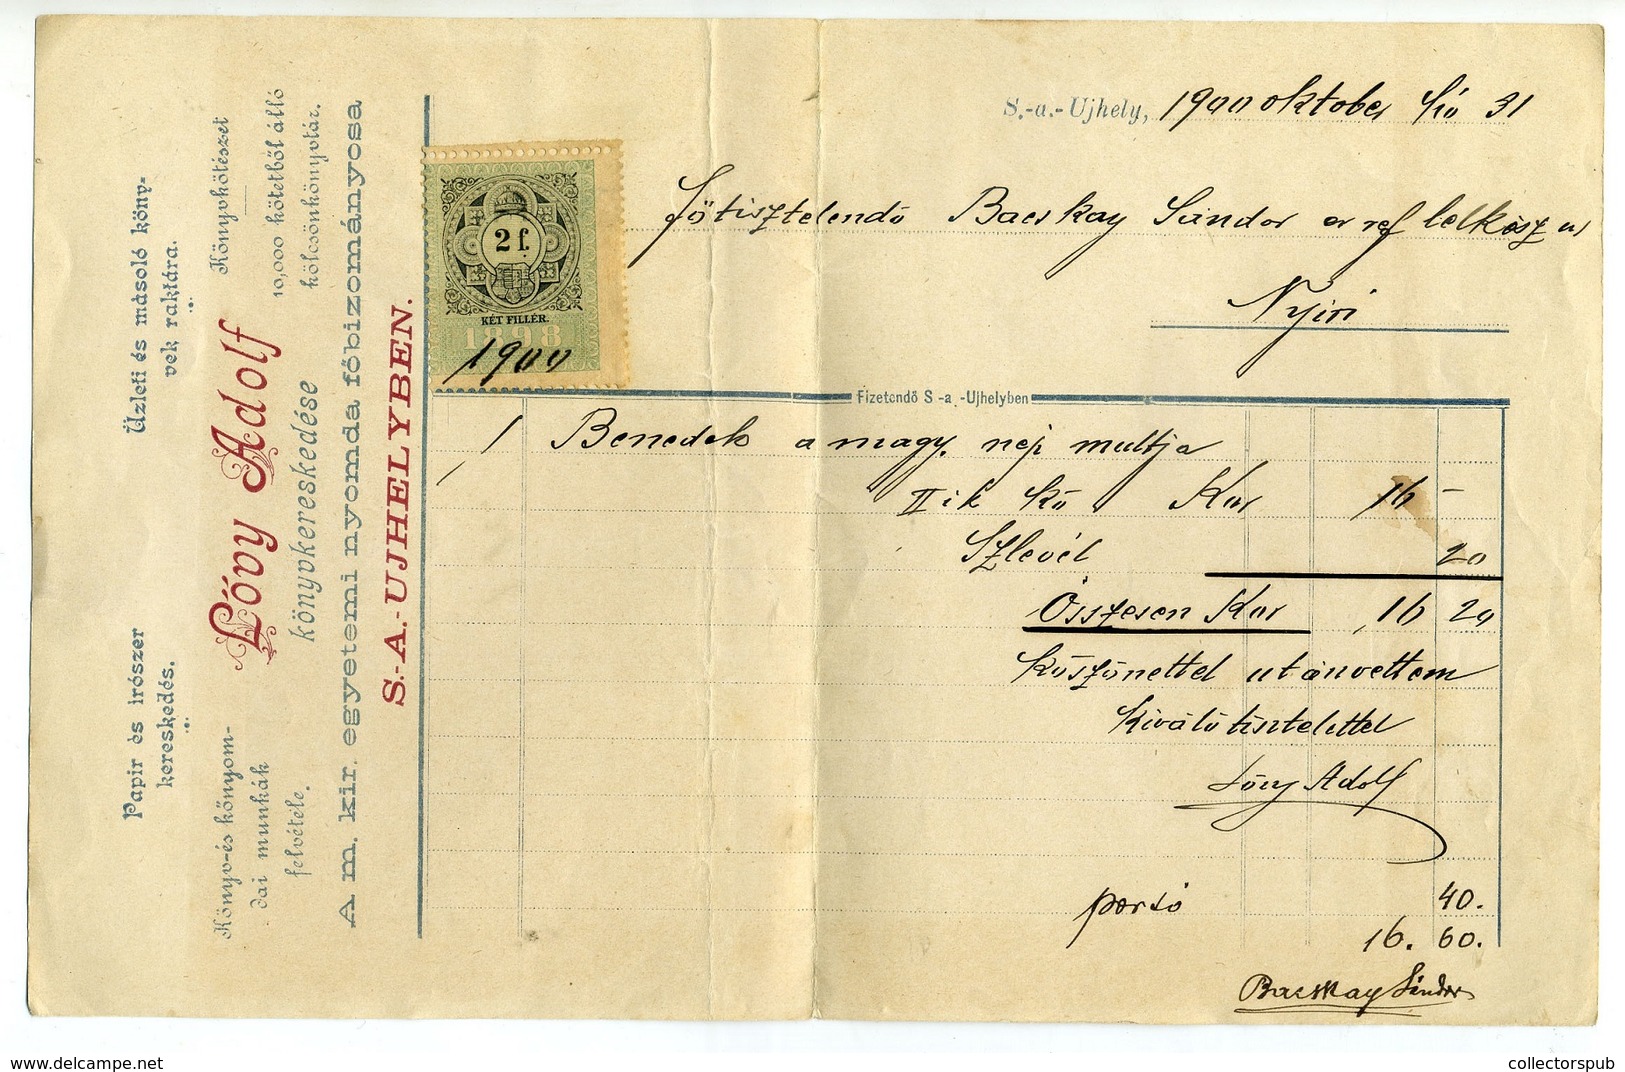 Papir és irószer
kereskedés.
Üzleti és másoló köny-
vek raktára.
Könyv-és kőnyom-
dai munkák
felvétele.
Lővy Adolf
könyvkereskedése
Könyvkötészet
10,000 kötetből álló
kölcsönkönyvtár.
A m. kir. egyetemi nyomda főbizományosa
S.-A.-UJHELYBEN.
2 f.
KÉT FILLÉR.
1898
1900
S.-a.-Ujhely, 1900 oktober hó 31
Főtisztelendő Bacskay Sándor ev ref lelkész úr
Nyiri
Fizetendő S-a.-Ujhelyben
1 Benedek a magy. nép multja
II ik kö Kor 16 –
Szlevél 20
Összesen Kor 16 20
Köszönettel utánvettem
Kiváló tisztelettel
Lővy Adolf
porto 40.
16. 60.
Bacskay Sándor
collectorspub
www.delcampe.net